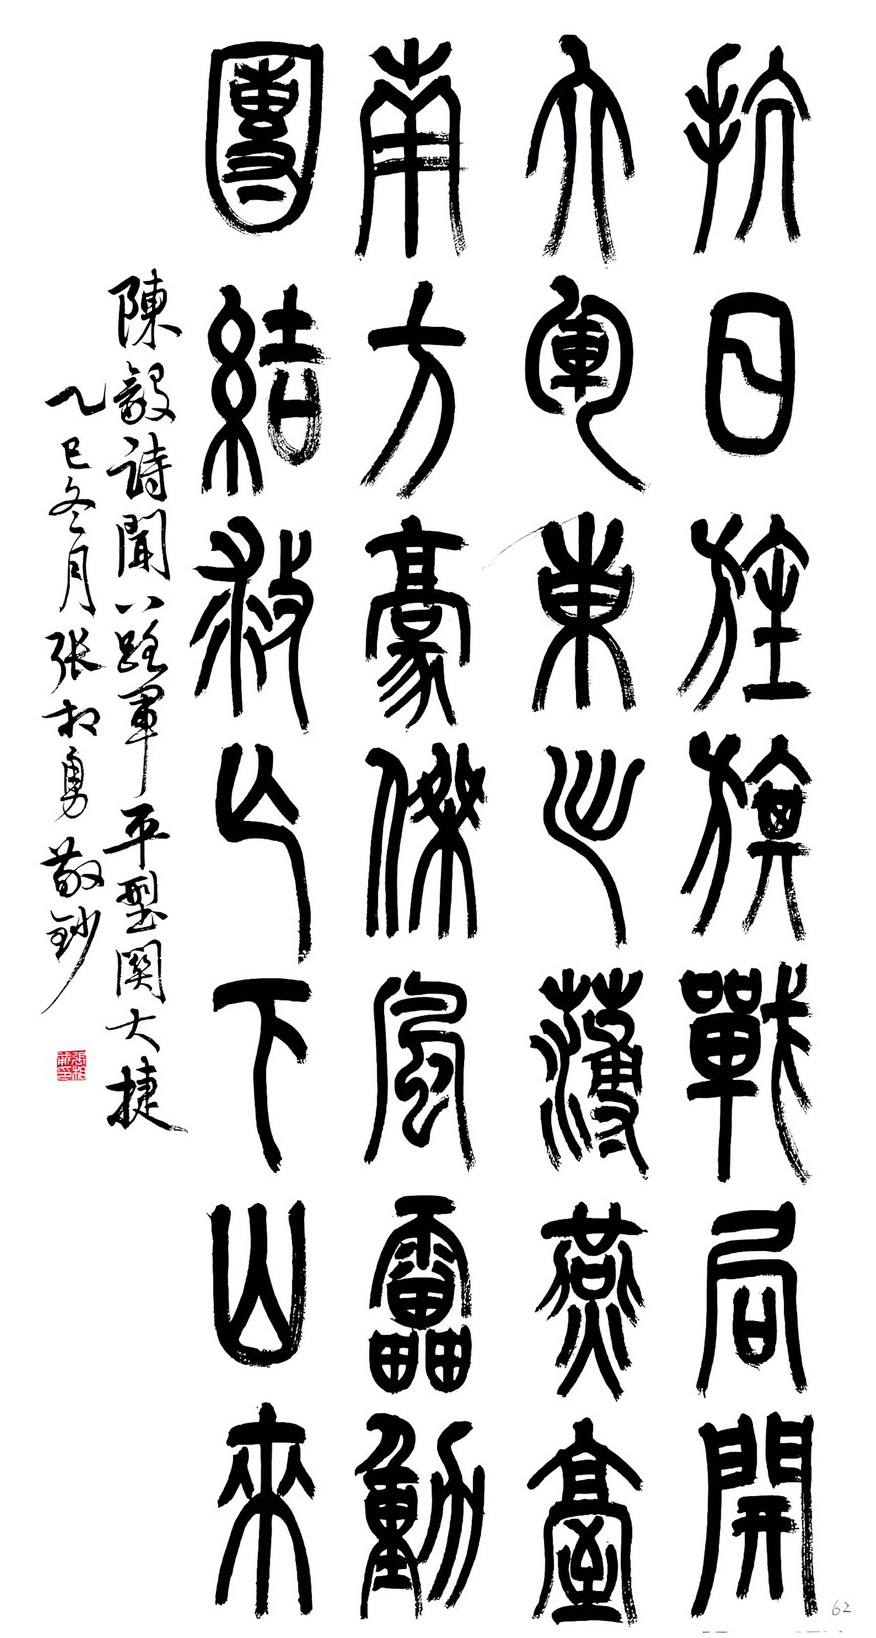 抗日旌旗戰局開
大軍東薄燕臺
南方豪傑風雷動
團結救亡下山來
陳毅詩聞八路軍平型關大捷
乙巳冬月張相勇敬鈔
62